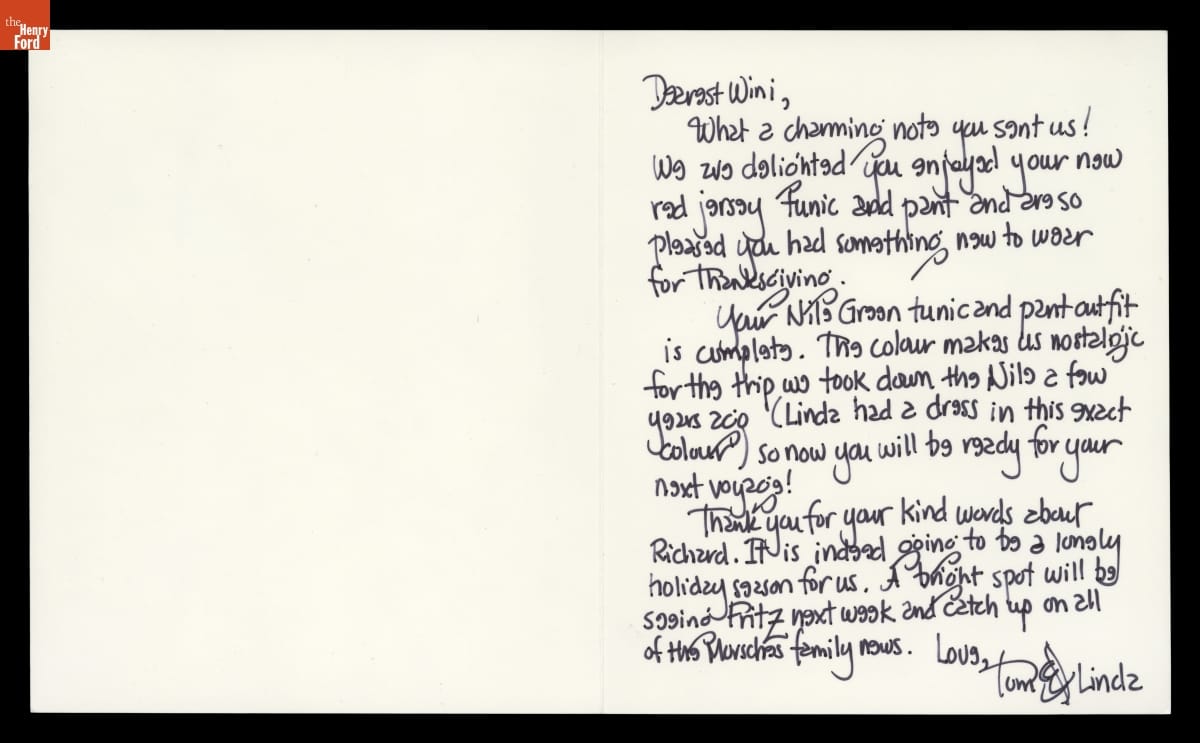 the
Henry
Ford
Dearest Wini,
What a charming note you sent us!
We are delighted you enjoyed your new
red jersey tunic and pant and are so
pleased you had something new to wear
for Thanksgiving.
Your Nile Green tunic and pant outfit
is complete. The colour makes us nostalgic
for the trip we took down the Nile a few
years ago (Linda had a dress in this exact
colour) so now you will be ready for your
next voyage!
Thank you for your kind words about
Richard. It is indeed going to be a lonely
holiday season for us. A bright spot will be
seeing Fritz next week and catch up on all
of the family news. Love,
Tom & Linda